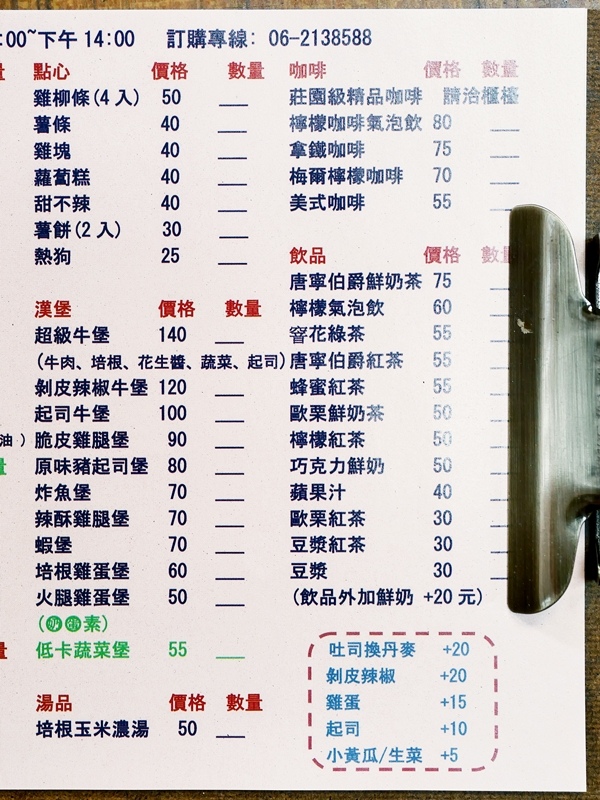 :00~下午 14:00 訂購專線: 06-2138588
點心 價格 數量
雞柳條(4 入) 50
薯條 40
雞塊 40
蘿蔔糕 40
甜不辣 40
薯餅(2 入) 30
熱狗 25
漢堡 價格 數量
超級牛堡 140
(牛肉、培根、花生醬、蔬菜、起司)
剝皮辣椒牛堡 120
起司牛堡 100
油)
脆皮雞腿堡 90
量
原味豬起司堡 80
炸魚堡 70
辣酥雞腿堡 70
蝦堡 70
培根雞蛋堡 60
火腿雞蛋堡 50
(奶蛋素)
低卡蔬菜堡 55
湯品 價格 數量
培根玉米濃湯 50
咖啡 價格 數量
莊園級精品咖啡 請洽櫃檯
檸檬咖啡氣泡飲 80
拿鐵咖啡 75
梅爾檸檬咖啡 70
美式咖啡 55
飲品 價格 數量
唐寧伯爵鮮奶茶 75
檸檬氣泡飲 60
窨花綠茶 55
唐寧伯爵紅茶 55
蜂蜜紅茶 55
歐栗鮮奶茶 50
檸檬紅茶 50
巧克力鮮奶 50
蘋果汁 40
歐栗紅茶 30
豆漿紅茶 30
豆漿 30
(飲品外加鮮奶 +20 元)
吐司換丹麥 +20
剝皮辣椒 +20
雞蛋 +15
起司 +10
小黃瓜/生菜 +5